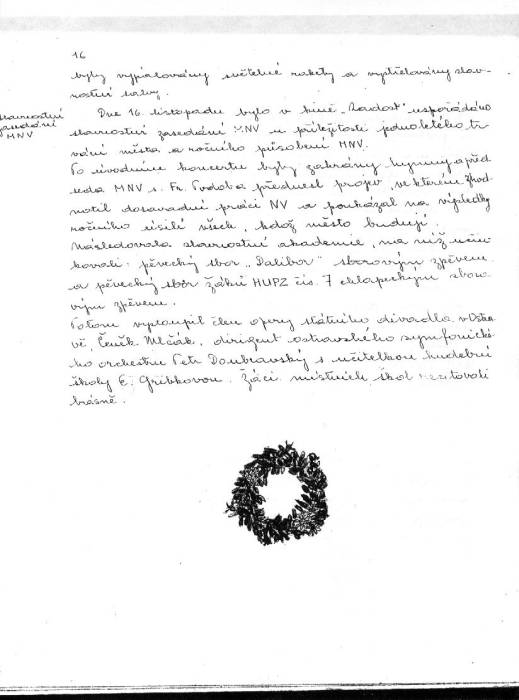 16
byly vypalovány světelné rakety a vystřelovány slav-
nostní salvy.
slavnostní
zasedání
MNV
Dne 16. listopadu bylo v kině „Radost" uspořádáno
slavnostní zasedání MNV u příležitosti jednoletého tr
vání města a ročního působení MNV.
Po úvodním koncertu byly zahrány hymny a před
seda MNV s. Fr. Podoba přednesl projev, ve kterém zhod
notil dosavadní práci NV a poukázal na výsledky
ročního úsilí všech, kdož město budují.
Následovala slavnostní akademie, na níž účin
kovali: pěvecký sbor „Dalibor" sborovým zpěvem
a pěvecký sbor žáků HUPZ čís. 7 chlapeckým sboro
vým zpěvem.
Potom vystoupil člen opery státního divadla v Ostra
vě, Čeněk Mlčák, dirigent ostravského symfonické
ho orchestru Petr Doubravský s učitelkou hudební
školy E. Gribkovou. Žáci místních škol recitovali
básně.